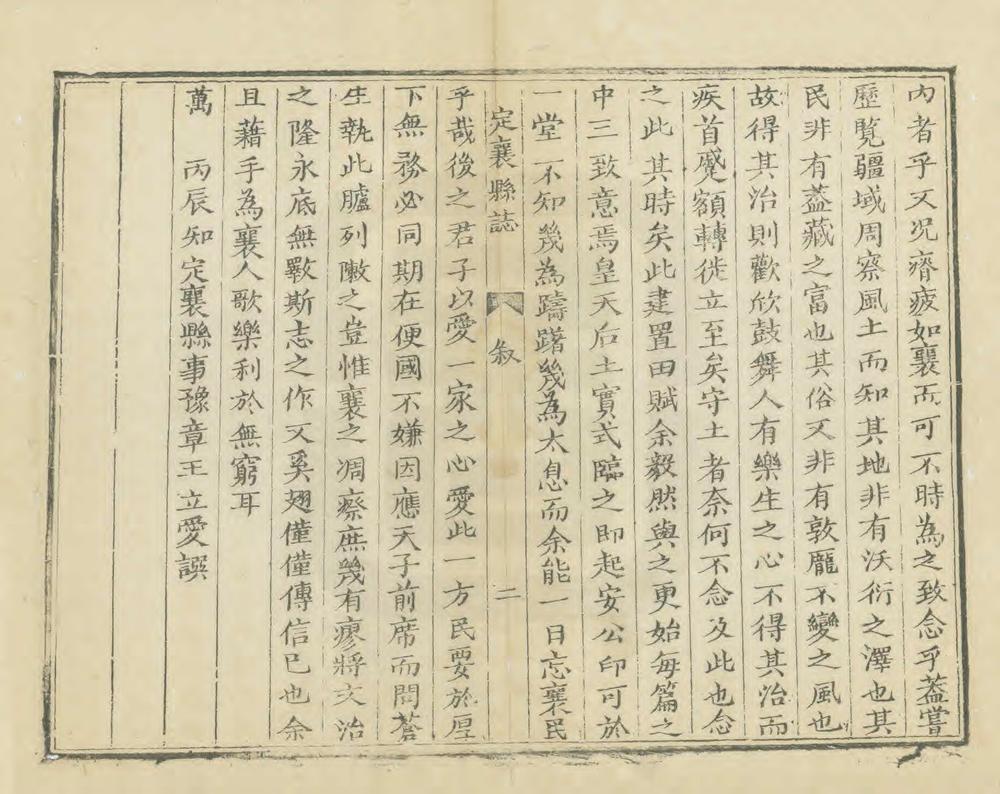 內者乎又况瘠疲如襄而可不時為之致念乎葢嘗
歷覽疆域周察風土而知其地非有沃衍之澤也其
民非有葢藏之富也其俗又非有敦龐不變之風也
故得其治則歡欣鼓舞人有樂生之心不得其治而
疾首蹙額轉徙立至矣守土者奈何不念及此也念
之此其時矣此建置田賦余毅然與之更始每篇之
中三致意焉皇天后土實式臨之即起安公印可於
一堂不知幾為躊躇幾為太息而余能一日忘襄民
定襄縣誌 敘 二
乎哉後之君子以愛一家之心愛此一方民要於厚
下無務必同期在便國不嫌因應天子前席而問蒼
生執此臚列敶之豈惟襄之凋瘵庶幾有廖將文治
之隆永底無斁斯志之作又奚翅僅僅傳信已也余
且藉手為襄人歌樂利於無窮耳
萬 丙辰知定襄縣事豫章王立愛譔